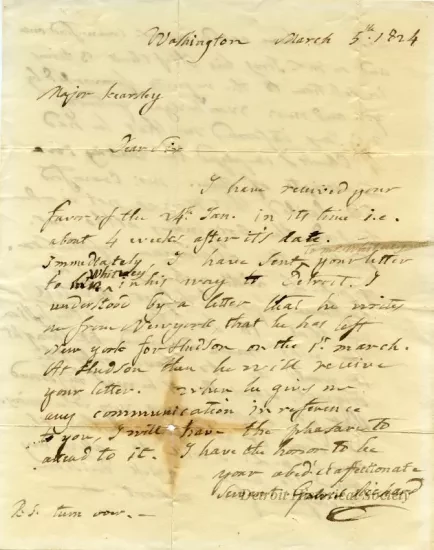 Washington March 5th. 1824
Major Kearsley
Dear Sir
I have received your
favor of the 24th. Jan. in its time i.e.
about 4 weeks after it's date.
Immediately, I have sent your letter
to Whitney in his way to Detroit. I
understood by a letter that he writes
me from Newyork, that he has left
New york for Hudson on the 1st. march.
At Hudson then he will receive
your letter. when he gives me
any communication in reference
to you, I will have the pleasure to
attend to it. I have the honor to be
your obed. & affectionate
Servant Gabriel Richard
Detroit Historical Society
P.S. turn over. -